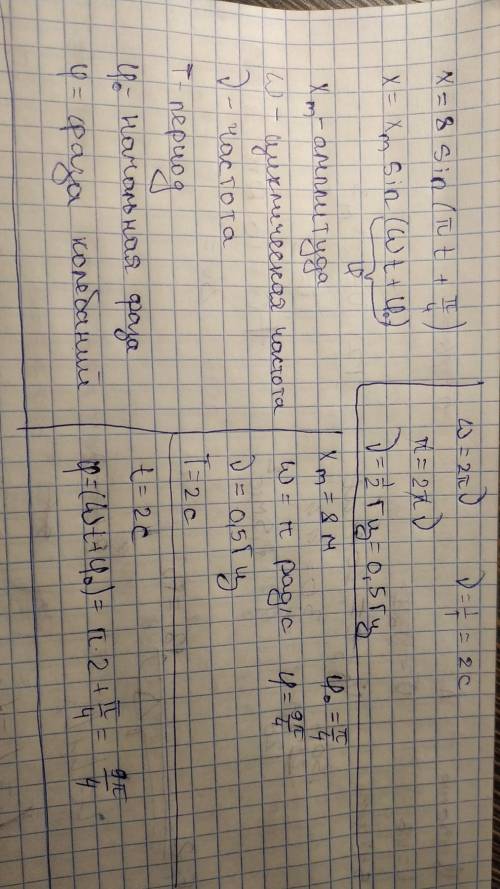 x = 8 sin (πt + π/4)
x = xm sin (ωt + φ0)
φ
xm - амплитуда
ω - циклическая частота
ν - частота
T - период
φ0 = начальная фаза
φ = фаза колебаний
ω = 2πν ν = 1/T = 2c
π = 2πν
ν = 1/2 Гц = 0,5 Гц
xm = 8 м φ0 = π/4
ω = π рад/с φ = 9π/4
ν = 0,5 Гц
T = 2c
t = 2c
φ = (ωt + φ0) = π · 2 + π/4 = 9π/4